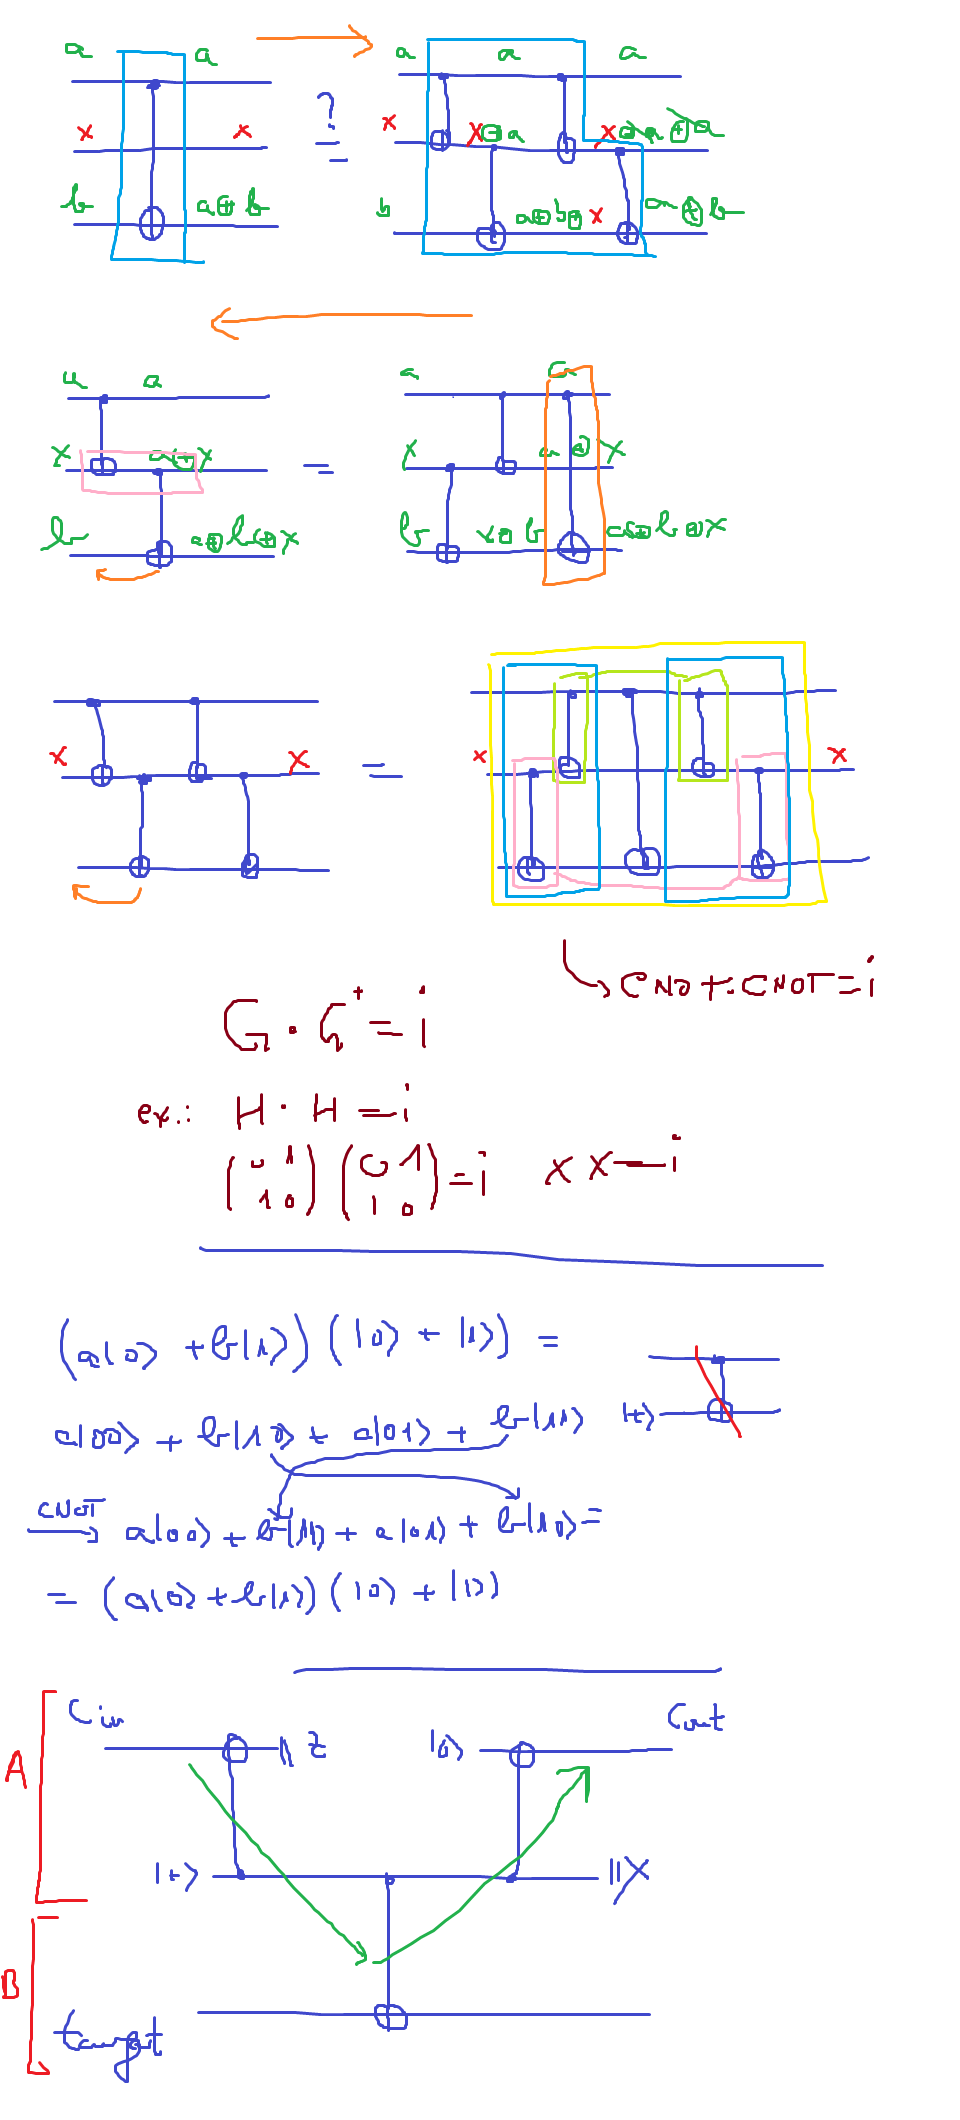 a a a a a
x x ? = x x⊕a x⊕a⊕a
b a⊕b b a⊕b⊕x a⊕b
a a a a
x a⊕x = x a⊕x
b a⊕b⊕x b x⊕b a⊕b⊕x
x x = x x
CNOT·CNOT=i
G·G⁺=i
ex.: H·H=i
(0 1 (0 1
1 0) 1 0)=i XX=i
(a|0> +b|1>)(|0> + |1>) =
a|00> + b|10> + a|01> + b|11> |+>
CNOT → a|00> + b|11> + a|01> + b|10> =
= (a|0> + b|1>)(|0> + |1>)
Cin Cout
A Z |0>
|+> X
B
target